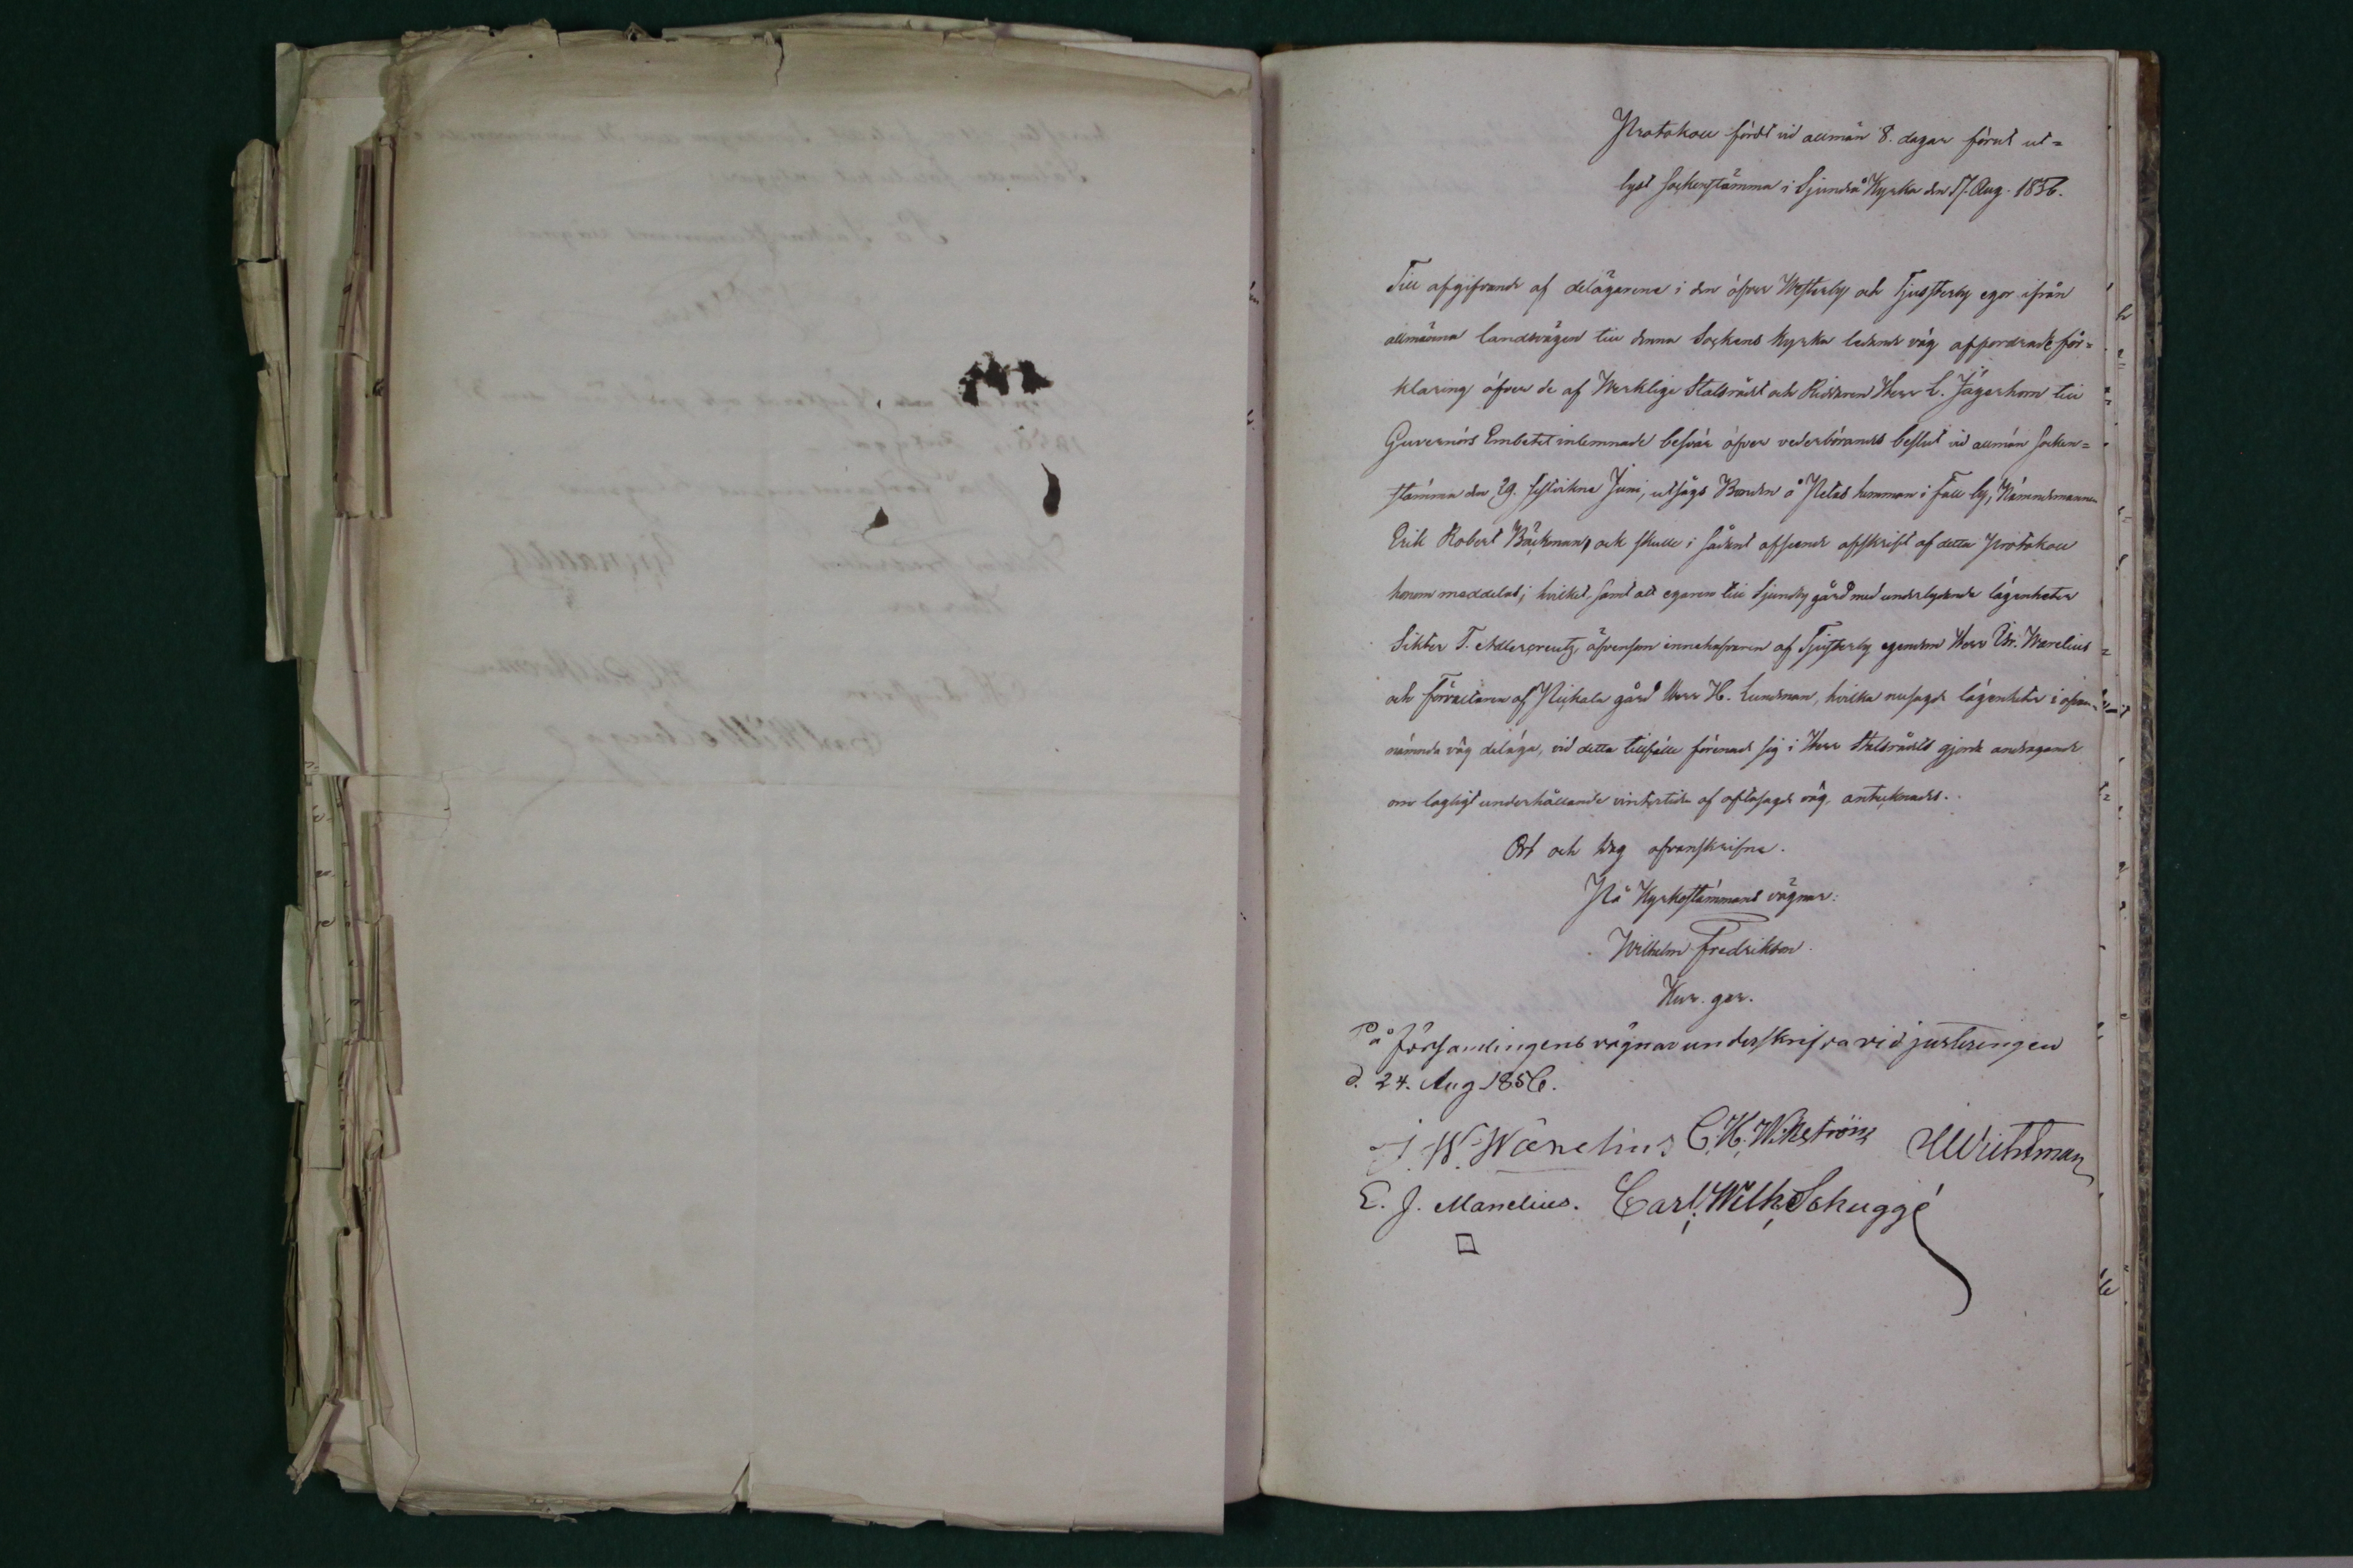 Protokoll fördt vid allmän 8. dagar förut ut=
lyst sockenstämma i Sjundeå Kyrka den 17. Aug. 1856.
Till afgifvande af delägarene i den öfver Westerby och Tjusterby egor ifrån
allmänna landsvägen till denna Sockens Kyrka ledande väg affordrade för=
klaring öfver de af Werklige Statsrådet och Riddaren Herr L. Jägerhorn till
Guvernörs Embetet inlemnade besvär öfver vederbörandes beslut vid allmän socken=
stämma den 29. sistvikne Juni, utsågs Bonden å Petas hemman i Fall by, Nämndemannen
Erik Robert Bäckman, och skulle i sådant afseende afskrift af detta Protokoll
honom meddelas; hvilket, samt att egaren till Sjundby gård med underlydande lägenheter
T. Adlercreutz, äfvensom innehafvaren af Tjusterby egendom Herr W. Warelius
och Förvaltaren af Pickala gård Herr H. Lundman, hvilka nusagde lägenheter i ofvan=
nämnde väg deläga, vid detta tillfälle förenade sig i Herr Statsrådets gjorde andragande
om lagligt underhållande vintertiden af oftasagde väg, antecknades.
Ort och dag ofvanskrifne.
På Kyrkostämmans vägnar:
Wilhelm Fredrikson
På Församlingens vägnar underskrifva vid justeringen
d. 24. Aug 1856.
J. W. Wänelius C. H. Wikström Wichtman
E. J. Manelius. Carl Wilh. Schuggé